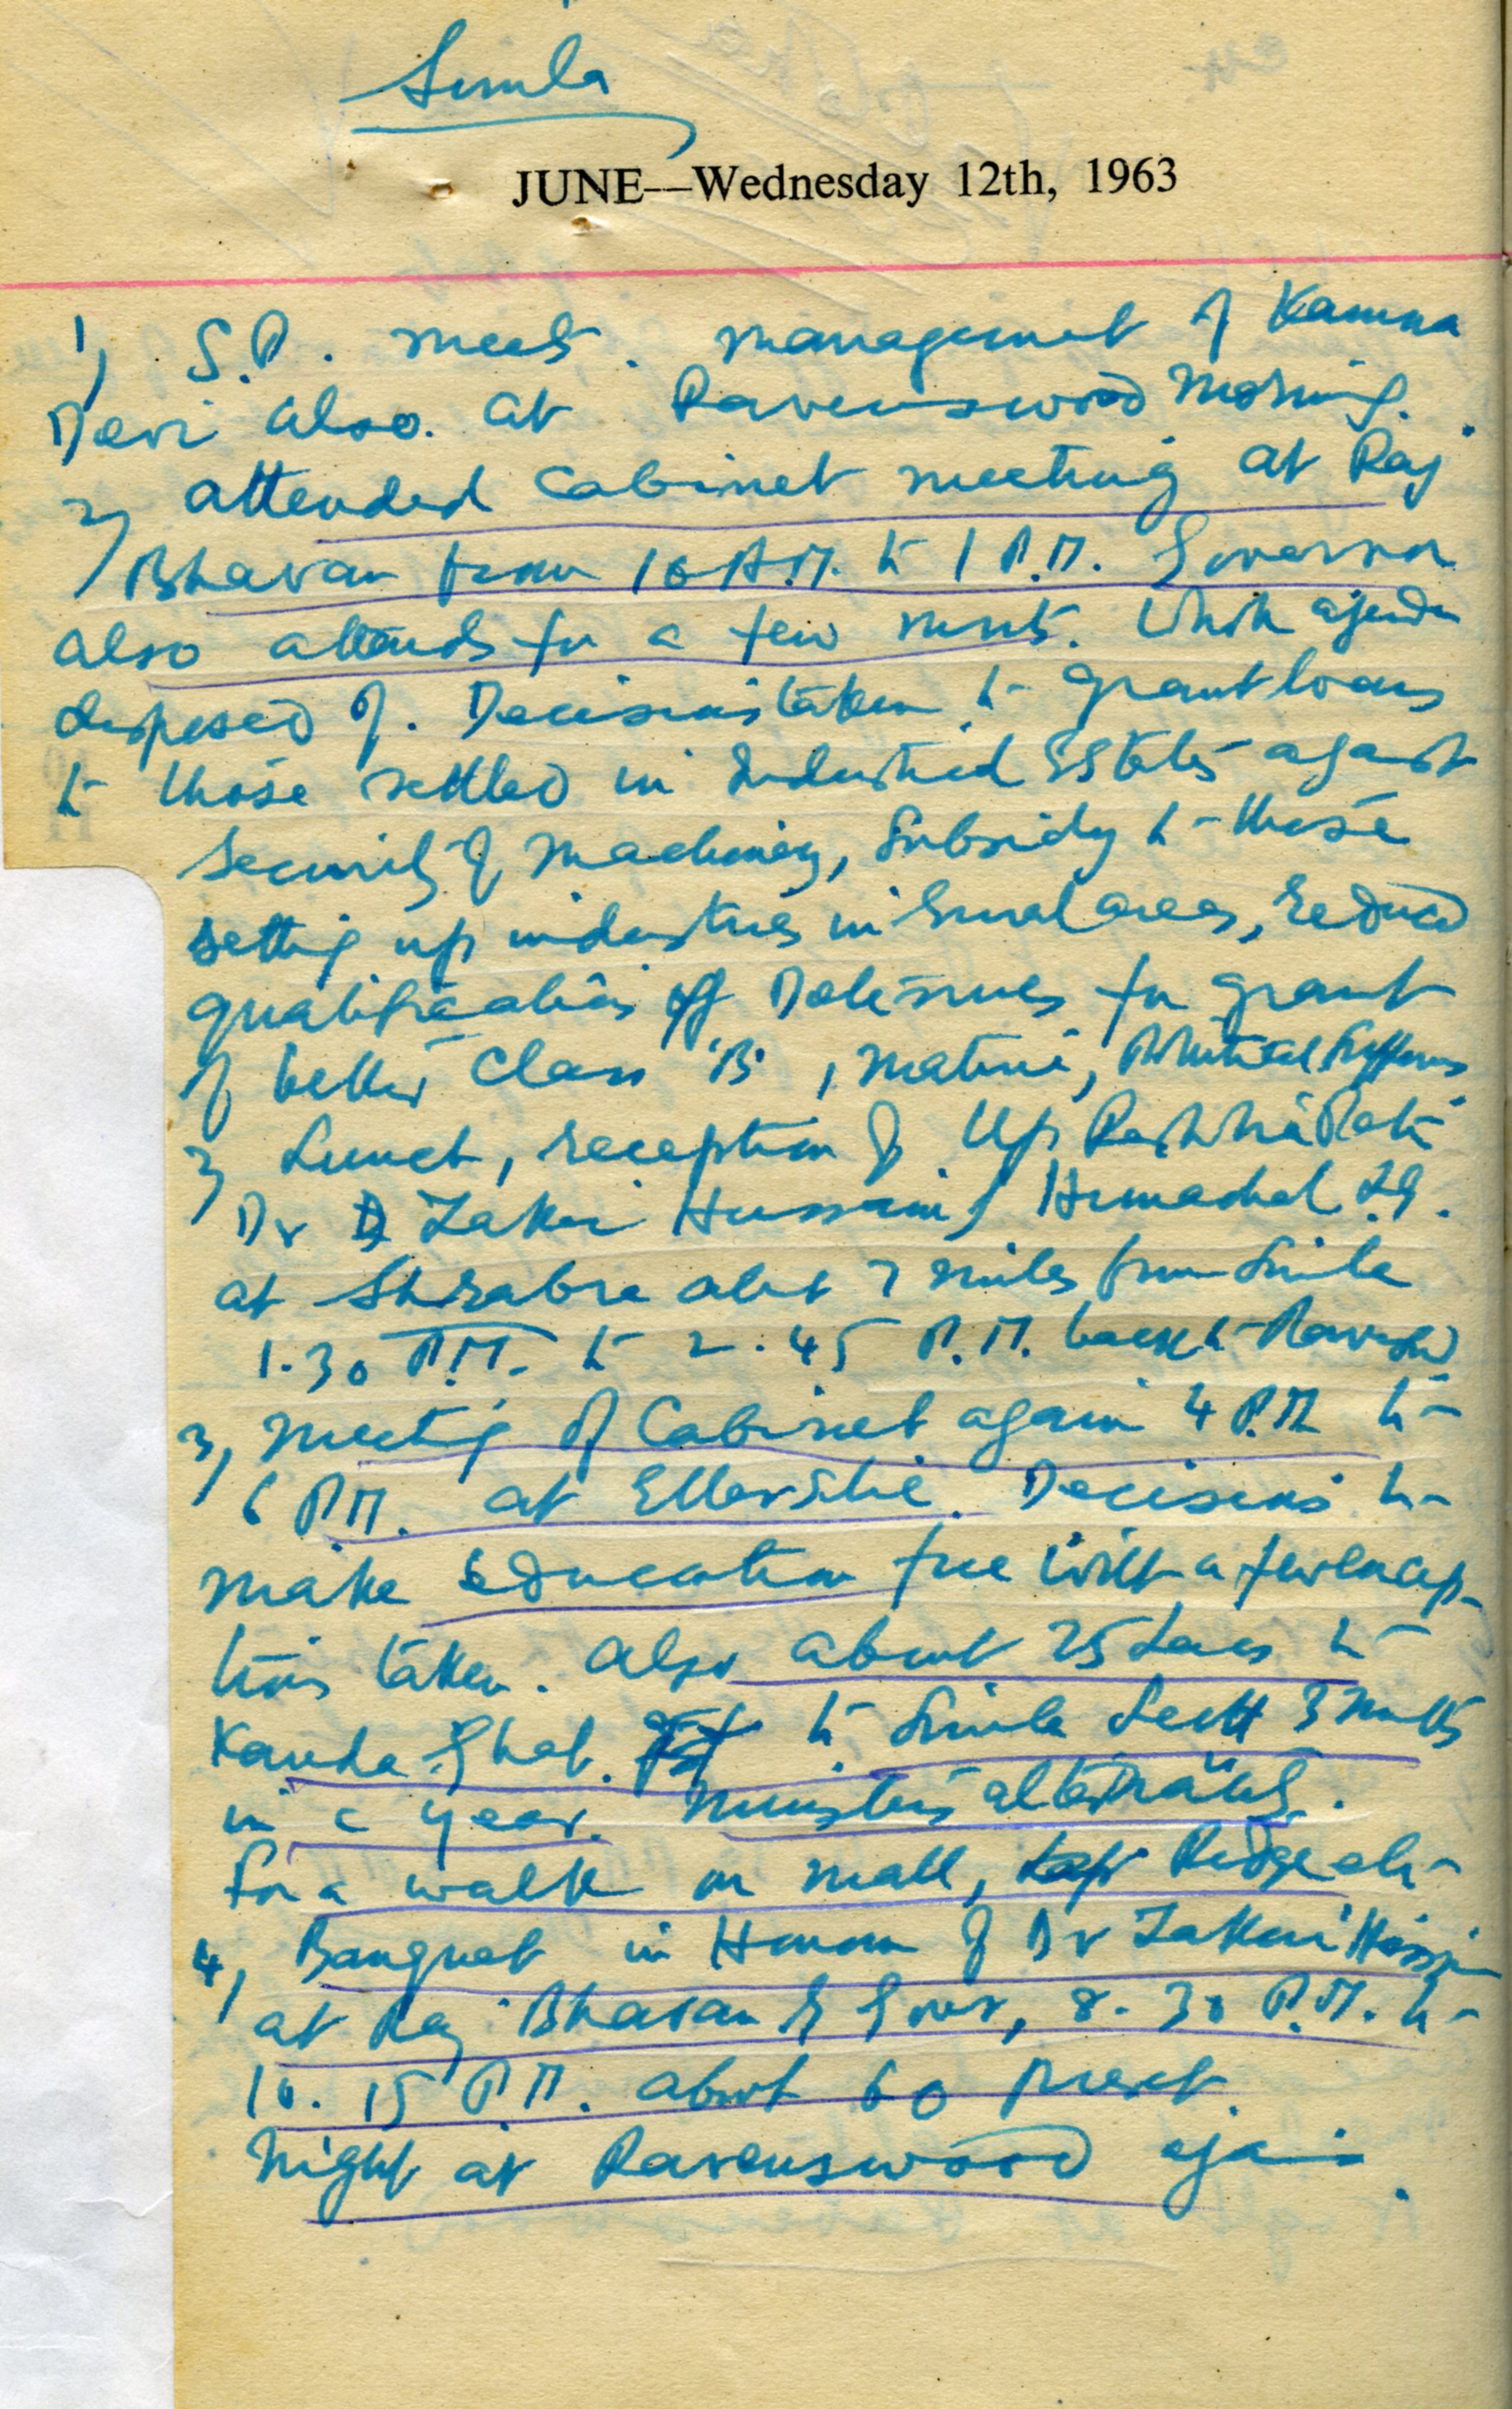 Simla
JUNE—Wednesday 12th, 1963
1) S.P. meets. management of Kamna
Devi also. at Ravenswood Morning.
2) attended Cabinet meeting at Raj
Bhavan from 10 A.M. to 1 P.M. Governor
also attends for a few mnts. Whole agenda
disposed of. Decisions taken to grant loans
to those settled in Industrial Estates against
Security of Machinery, Subsidy to those
setting up industries in rural areas, reduced
qualifications of Detenues for grant
of better class 'B', Matric, Political Sufferers
3) Lunch, reception of Up Rashtra Pati
Dr Zakir Hussain, Himachal LG.
at Sharabra abt 7 miles from Simla
1.30 P.M. to 2.45 P.M. back to Ravenswd
3, Meeting of Cabinet again 4 P.M. to
6 P.M. at Ellerslie. Decisions to
make education free with a few excep-
tions taken. Also about 25 Lacs to
Kanda Ghat. to Simla Sectt 3 Mnths
in a year. Ministers alternately.
For a walk on Mall, Ridge etc
4, Banquet in Honour of Dr Zakir Hussain
at Raj Bhavan by Govr, 8.30 P.M. to
10.15 P.M. about 60 present.
Night at Ravenswood again.